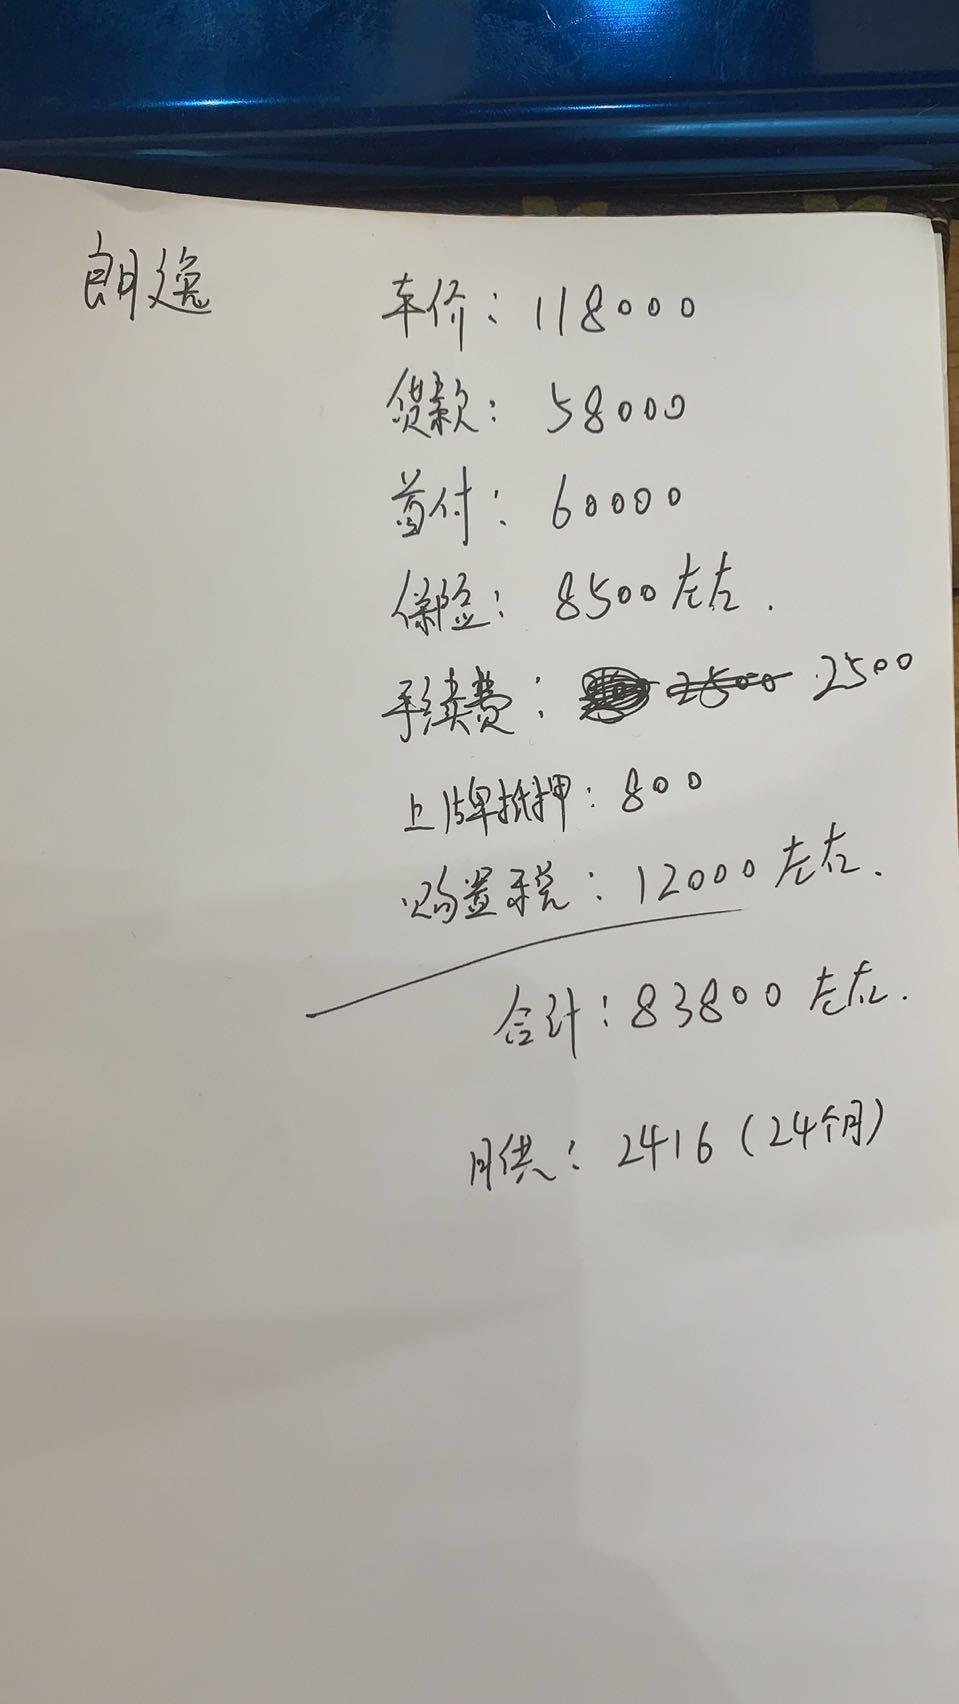 朗逸
车价：118000
贷款：58000
首付：60000
保险：8500左右.
手续费：2500 2500
上牌抵押：800
购置税：12000左右.
合计：83800左右.
月供：2416（24个月）